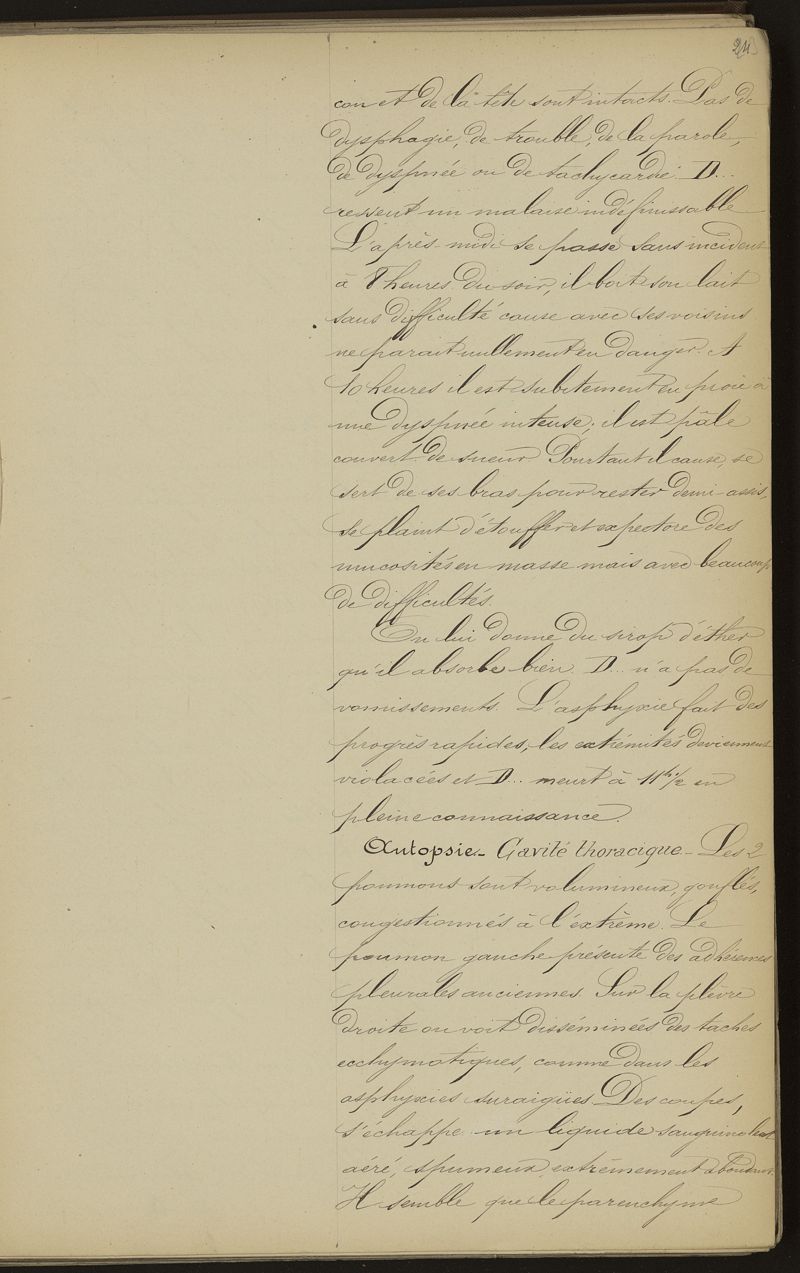 24
cou et de la tête sont intacts. Pas de
dysphagie, de trouble, de la parole,
de dyspnée ou de tachycardie. D...
ressent un malaise indéfinissable
L'après-midi se passe sans incident
à 8 heures du soir, il boit son lait
sans difficulté cause avec ses voisins
ne parait nullement en danger. A
10 heures il est subitement en proie à
une dyspnée intense; il est pâle
couvert de sueur Pourtant il cause, se
sert de ses bras pour rester demi-assis,
se plaint d'étouffer et expectore des
mucosités en masse mais avec beaucoup
de difficultés.
On lui donne du sirop d'éther
qu'il absorbe bien D... n'a pas de
vomissements. L'asphyxie fait des
progrès rapides, les extrémités deviennent
violacées et D... meurt à 11 h. 1/2 en
pleine connaissance.
Autopsie - Cavité thoracique - Les 2
poumons sont volumineux, gonflés,
congestionnés à l'extrême. Le
poumon gauche présente des adhérences
pleurales anciennes. Sur la plèvre
droite on voit disséminées des taches
ecchymotiques, comme dans les
asphyxies suraigües. Des coupes,
s'échappe un liquide sanguinolent
aéré, spumeux, extrêmement abondant.
Il semble que le parenchyme